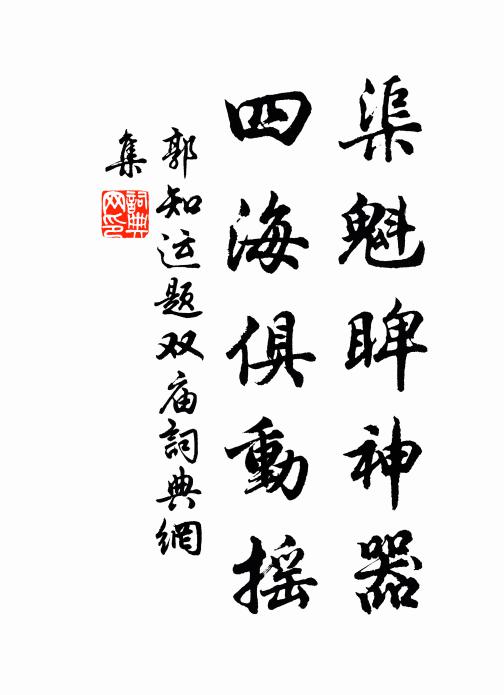 渠魁睥神器
四海俱動摇
郭知运题双庙詞典網
集
詞典网印